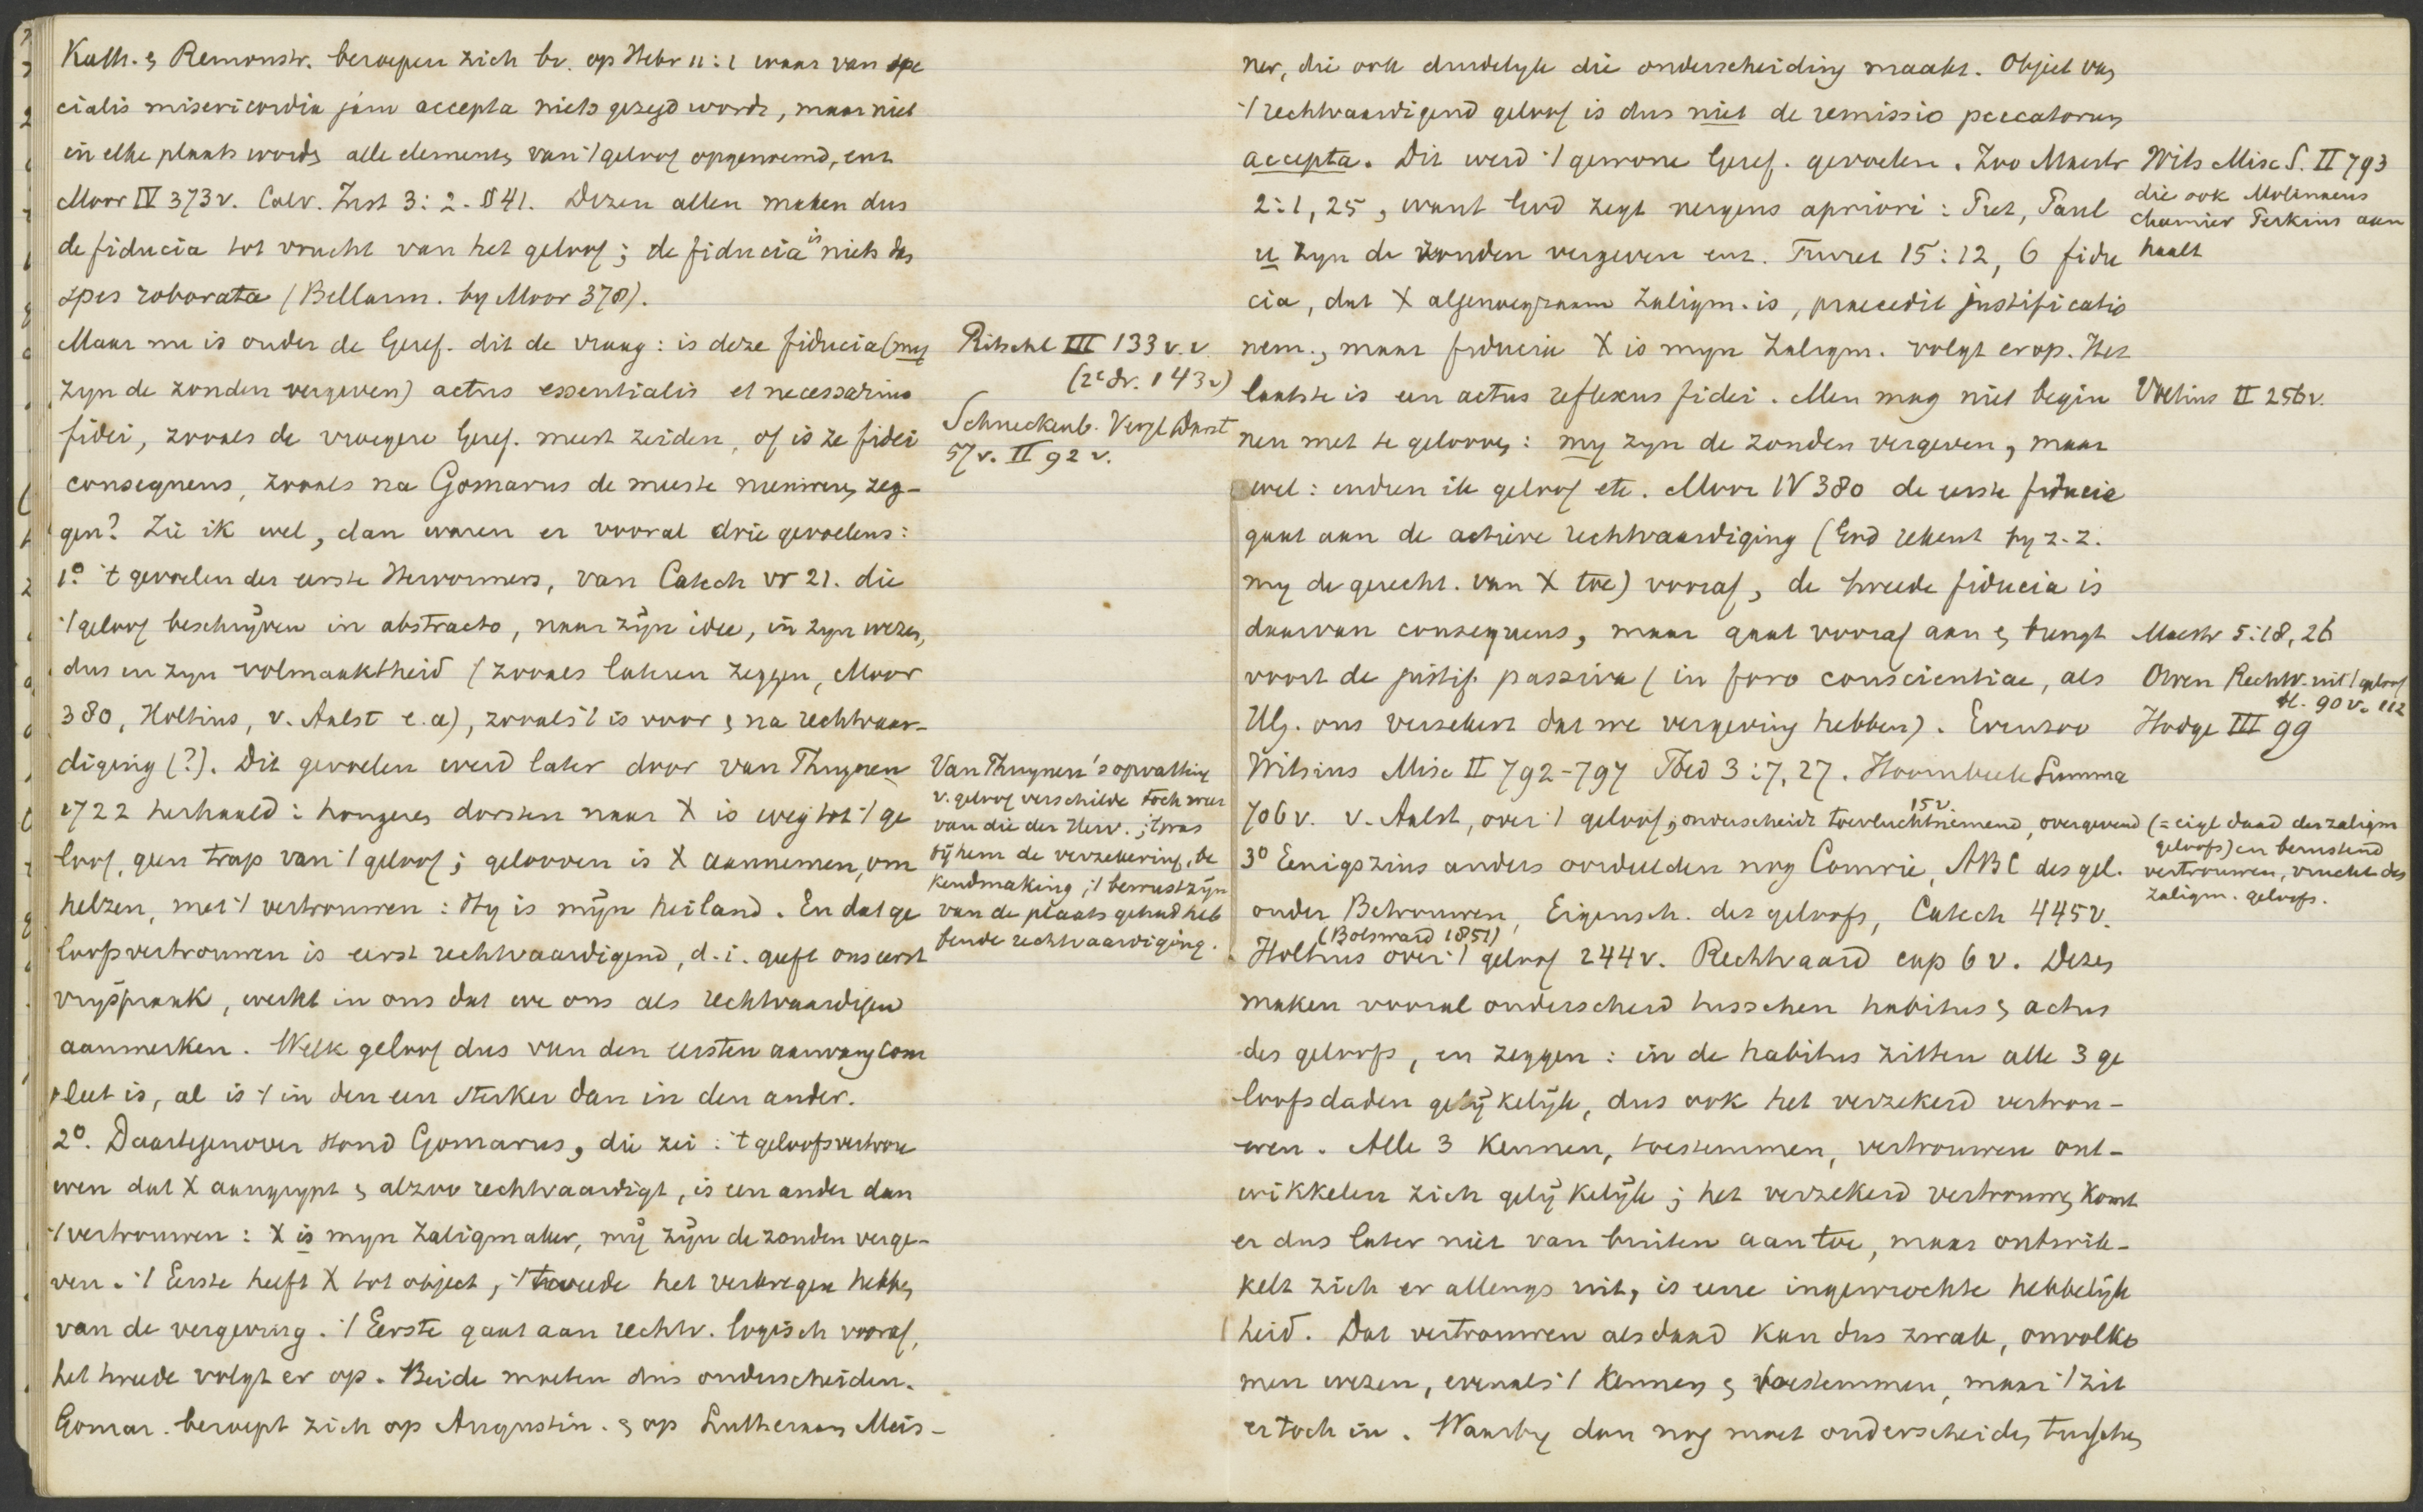 Kath. & Remonstr. beroepen zich bv. op Hebr 11:1 waar van spe
cialis misericordia jam accepta niets gezegd wordt, maar niet
in elke plaats worden alle elementen van 't geloof opgenoemd, enz
Moor IV 373v. Calv. Inst 3:2. § 41. Dezen allen maken dus
de fiducia tot vrucht van het geloof; de fiducia is niets dan
spes roborata (Bellarm. by Moor 378).
Maar nu is onder de Geref. dit de vraag: is deze fiducia (my
zyn de zonden vergeven) actus essentialis et necessarius
fidei, zooals de vroegere Geref. meest zeiden, of is ze fidei
consequens, zooals na Gomarus de meeste meenen, zeg-
gen? Zie ik wel, dan waren er vooral drie gevoelens:
1º 't gevoelen der eerste Hervormers, van Catech vr 21. die
't geloof beschrijven in abstracto, naar zijn idee, in zyn wezen,
dus in zyn volmaaktheid (zooals lateren zeggen, Moor
380, Holtius, v. Aalst e.a), zooals 't is voor & na rechtvaar-
diging (?). Dit gevoelen werd later door van Thuynen
1722 herhaald: hongeren dorsten naar X is weg tot 't ge
loof, geen trap van 't geloof; gelooven is X aannemen, om
helzen, met 't vertrouwen: Hy is mijn heiland. En dat ge
loofsvertrouwen is eerst rechtvaardigend, d.i. geeft ons eerst
vrijspraak, werkt in ons dat we ons als rechtvaardigen
aanmerken. Welk geloof dus van den eersten aanvang com
pleet is, al is 't in den een sterker dan in den ander.
2º. Daartegenover stond Gomarus, die zei: 't geloofsvertrou
wen dat X aangrypt & alzoo rechtvaardigt, is een ander dan
't vertrouwen: X is myn Zaligmaker, mij zijn de zonden verge-
ven. 't Eerste heeft X tot object, 't tweede het verkregen hebben
van de vergeving. 't Eerste gaat aan rechtv. logisch vooraf,
het tweede volgt er op. Beide moeten dus onderscheiden.
Gomar. beroept zich op Augustin. & op Lutheraan Meis-
Ritschl III 133 v.v
(2e dr. 143v)
Schneckenb. Vergl Darst
57v. II 92 v.
Van Thuynen's opvatting
v. geloof verschilde toch weer
van die der Herv.; 't was
bij hem de verzekering, be
kendmaking, 't bewustzijn
van de plaats gehad heb
bende rechtvaardiging.
ner, die ook duidelyk die onderscheiding maakt. Object van
't rechtvaardigend geloof is dus niet de remissio peccatorum
accepta. Dit werd 't gewone Geref. gevoelen. Zoo Mastr
2:1, 25, want God zegt nergens apriori: Piet, Paul
u zyn de zonden vergeven enz. Turret 15:12, 6 fidu
cia, dat X algenoegzaam Zaligm. is, praecedit justificatio
nem., maar fiducia X is myn Zaligm. volgt erop. Het
laatste is een actus reflexus fidei. Men mag niet begin
nen met te gelooven: my zyn de zonden vergeven, maar
wel: indien ik geloof etc. Moor IV 380 de eerste fiducia
gaat aan de actieve rechtvaardiging (God rekent by z.z.
my de gerecht. van X toe) vooraf, de tweede fiducia is
daarvan consequens, maar gaat vooraf aan & brengt
voort de justif. passiva (in foro conscientiae, als
HG. ons verzekert dat we vergeving hebben). Evenzoo
Witsius Misc II 792-797 Foed 3:7, 27. Hoornbeek Summa
706v. v. Aalst, over 't geloof, 15v onderscheidt toevluchtnemend, overgevend
3º Eenigszins anders oordeelden nog Comrie, ABC des gel.
onder Betrouwen, Eigensch. des geloofs, Catech 445v.
(Bolsward 1851)
Holtius over 't geloof 244v. Rechtvaard cap 6v. Dezen
maken vooral onderscheid tusschen habitus & actus
des geloofs, en zeggen: in de habitus zitten alle 3 ge
loofsdaden gelijkelijk, dus ook het verzekerd vertrou-
wen. Alle 3 kennen, toestemmen, vertrouwen ont-
wikkelen zich gelijkelijk; het verzekerd vertrouwen komt
er dus later niet van buiten aan toe, maar ontwik-
kelt zich er allengs uit, is eene ingewrochte hebbelijk
heid. Dat vertrouwen als daad kan dus zwak, onvolko
men wezen, evenals 't kennen & toestemmen, maar 't zit
er toch in. Waarby dan nog moet onderscheiden tusschen
Wits Misc S. II 793
die ook Molinaeus
Chamier Perkins aan
haalt
Voetius II 256v.
Mastr 5:18, 26
Owen Rechtv. uit 't geloof
bl. 90v. 112
Hodge III 99
(= eigl daad des zaligm
geloofs) en berustend
vertrouwen, vrucht des
zaligm. geloofs.